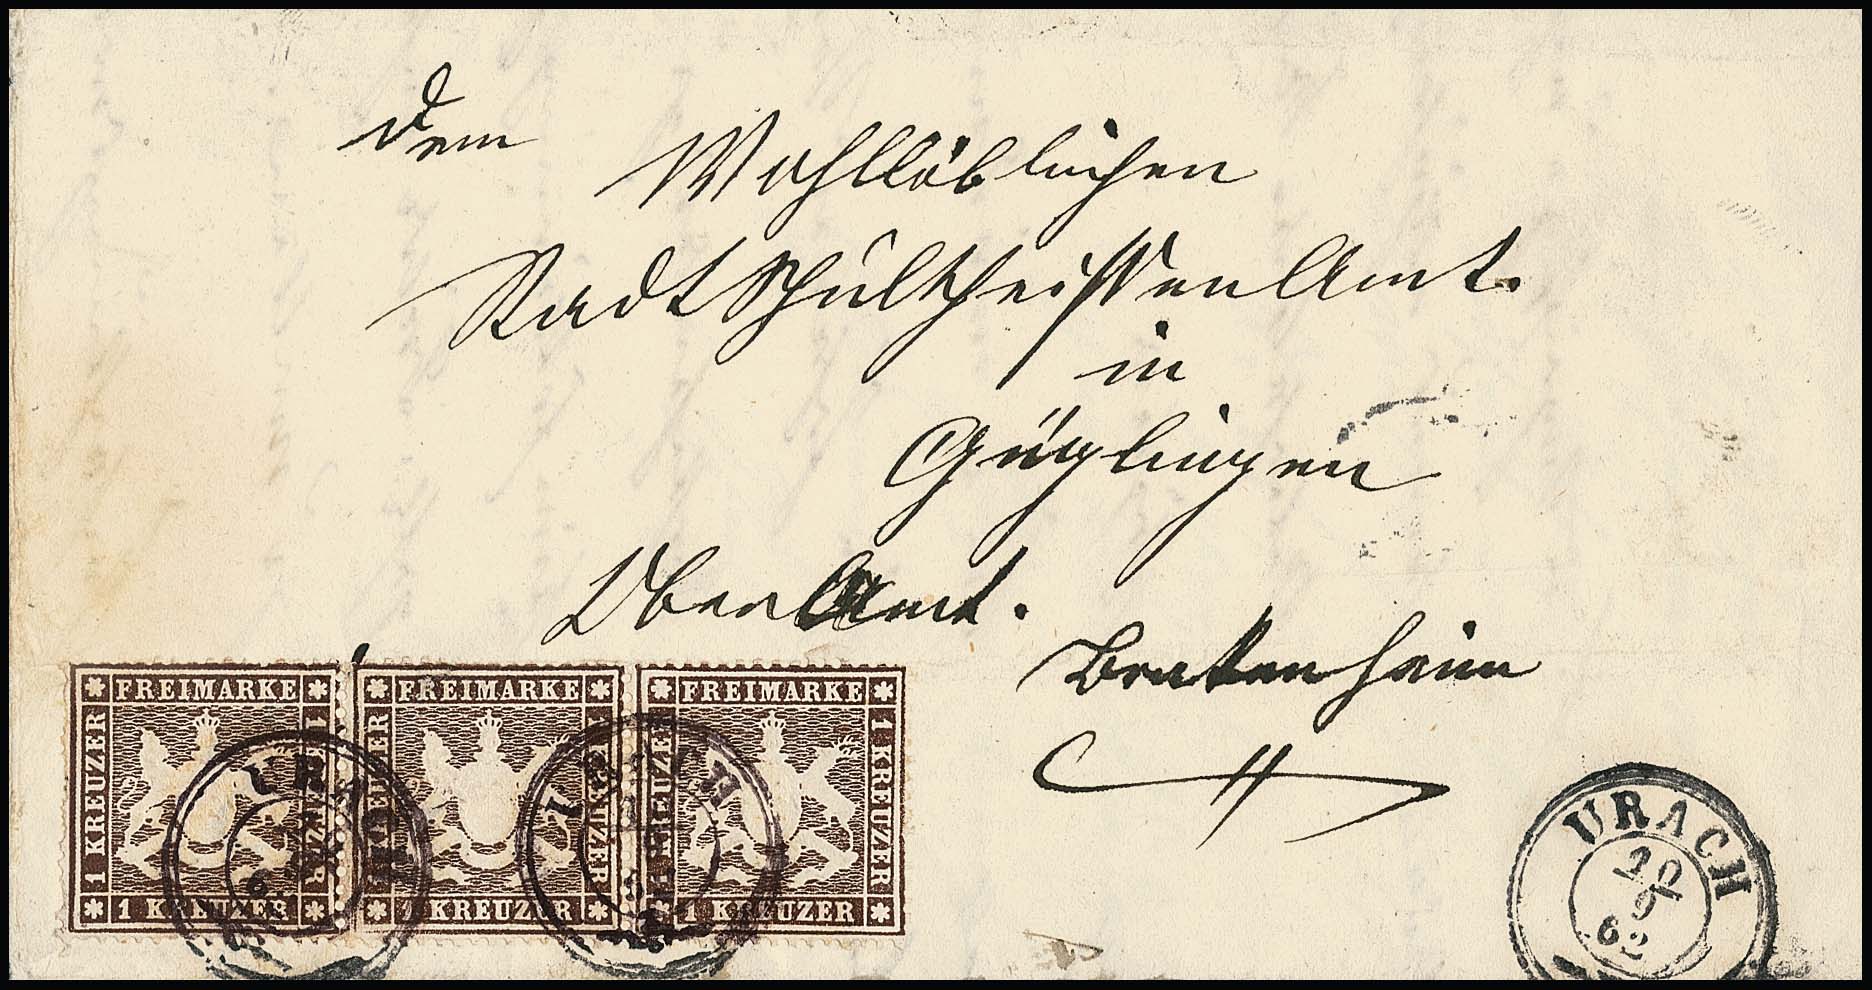 Dem
Wohllöblichen
StadtSchultheissenAmt.
in
Güglingen
OberAmt.
Brakenheim
FREIMARKE FREIMARKE FREIMARKE
1 KREUZER 1 KREUZER 1 KREUZER 1 KREUZER
1 KREUZER 1 KREUZER 1 KREUZER 1 KREUZER
1 KREUZER
URACH
URACH
URACH
20
9
62